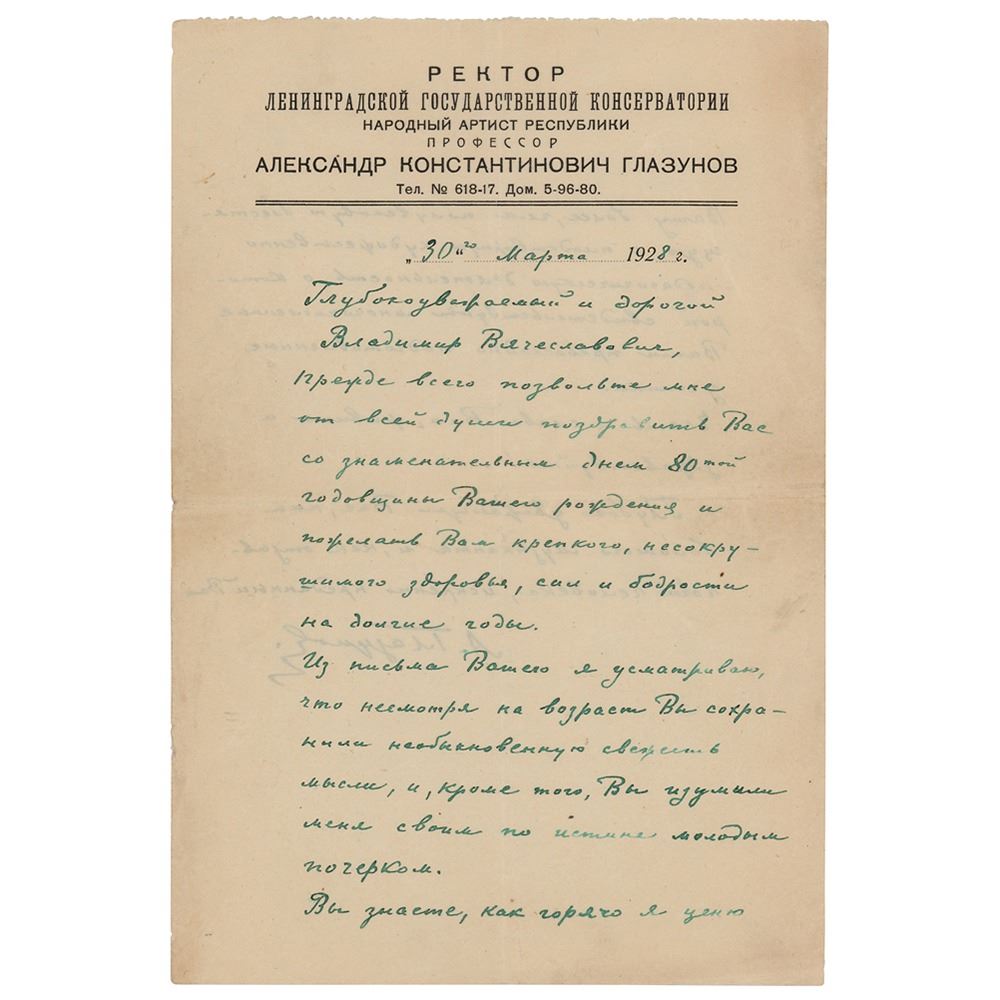 РЕКТОР
ЛЕНИНГРАДСКОЙ ГОСУДАРСТВЕННОЙ КОНСЕРВАТОРИИ
НАРОДНЫЙ АРТИСТ РЕСПУБЛИКИ
ПРОФЕССОР
АЛЕКСАНДР КОНСТАНТИНОВИЧ ГЛАЗУНОВ
Тел. № 618-17. Дом. 5-96-80.
„30“го Марта 1928 г.
Глубокоуважаемый и дорогой
Владимир Вячеславович,
прежде всего позвольте мне
от всей души поздравить Вас
со знаменательным днем 80той
годовщины Вашего рождения и
пожелать Вам крепкого, несокру-
шимого здоровья, сил и бодрости
на долгие годы.
Из письма Вашего я усматриваю,
что несмотря на возраст Вы сохра-
нили необыкновенную свежесть
мысли, и, кроме того, Вы изумили
меня своим по истине молодым
почерком.
Вы знаете, как горячо я ценю